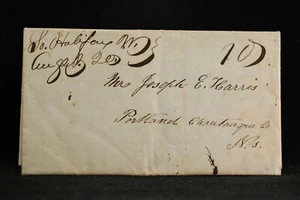 So. Halifax Vt.
Aug 20
10
Mrs Joseph E. Harris
Portland Chautauque Co
N.Y.